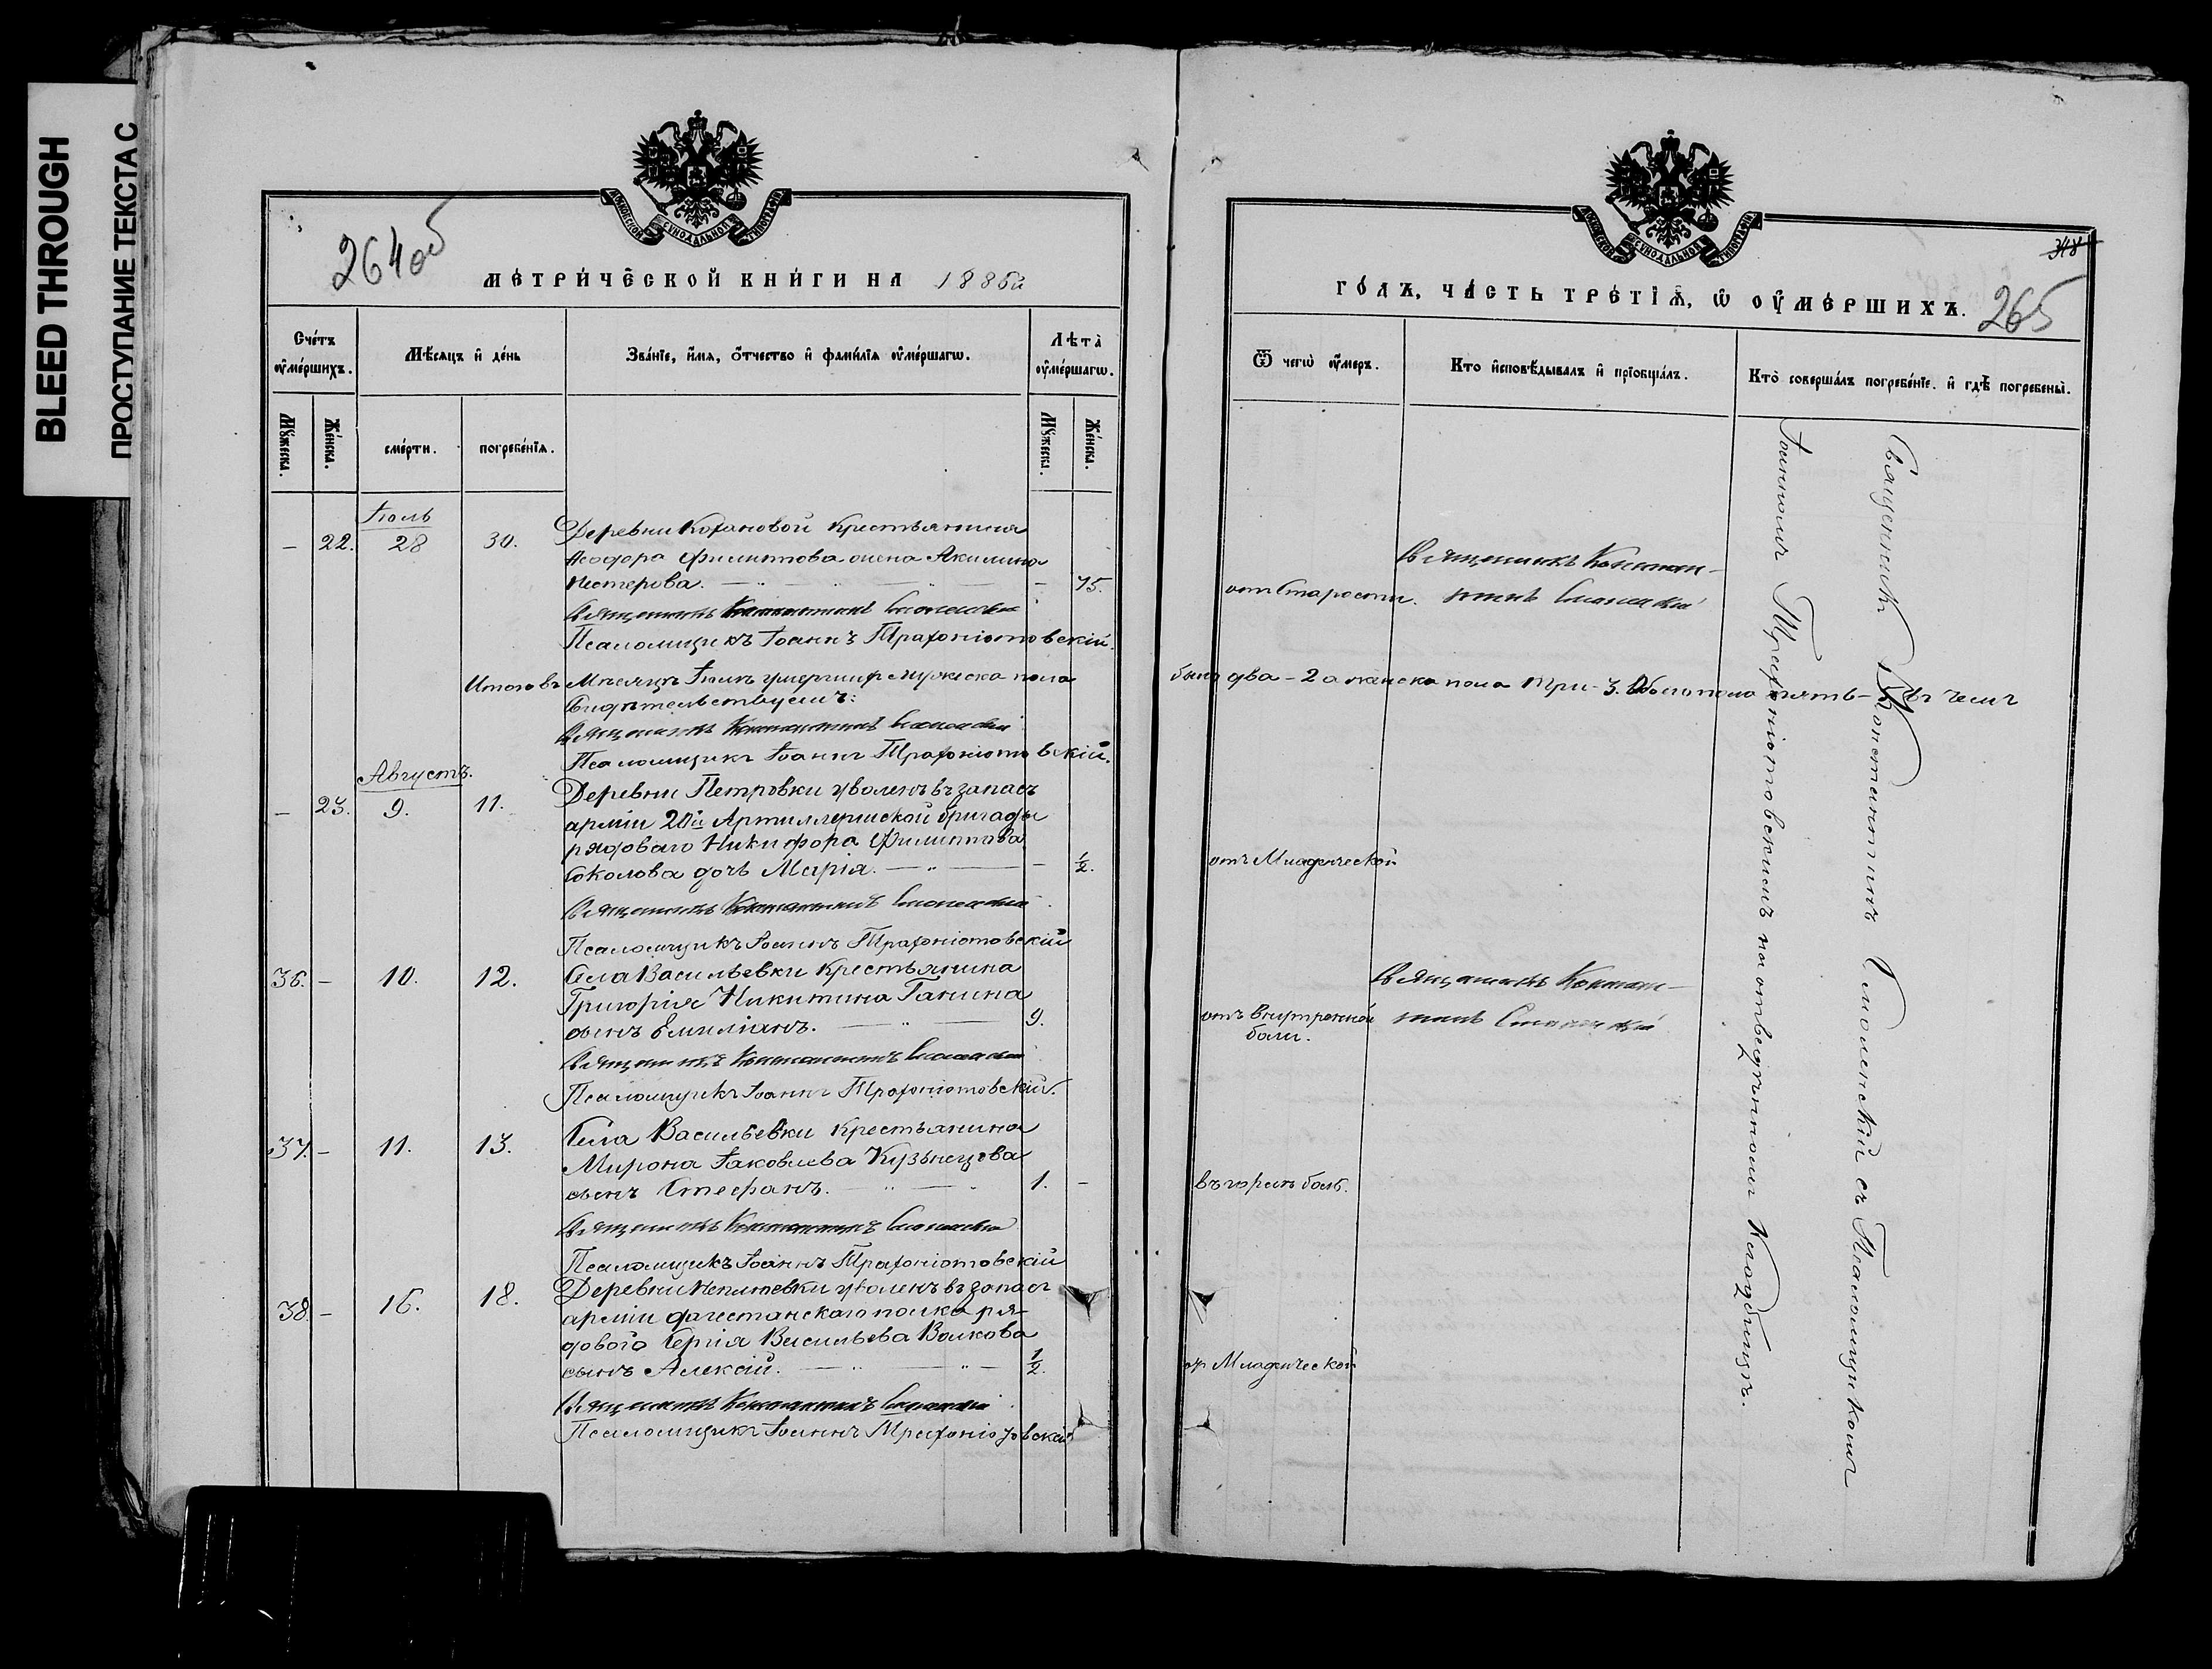 BLEED THROUGH
ПРОСТУПАНИЕ ТЕКСТА С
МОСКОВСКОЙ СѴНОДАЛЬНОЙ ТИПОГРАФІИ
264об
МЕТРИЧЕСКОЙ КНИГИ НА 1886й
Счетъ оумершихъ.
Мѣсяцъ и день
Званіе, имя, отчество и фамилія оумершагѡ.
Лѣта оумершагѡ.
Мужеска.
Женска.
смерти.
погребенія.
Мужеска.
Женска.
Іюль
– 22. 28 30. Деревни Кохановой Крестьянина
Ѳеодора Филиппова жена Акилина
Нестерова. – 75.
Священникъ Константинъ Смоленскій
Псаломщикъ Іоаннъ Трахоніотовскій.
Итого въ Мѣсяцѣ Іюлѣ умершихъ мужеска пола
Свидѣтельствуемъ:
Священникъ Константинъ Смоленскій
Псаломщикъ Іоаннъ Трахоніотовскій.
Августъ.
– 23. 9. 11. Деревни Петровки уволен. въ запасъ
арміи 20й Артиллерійской бригады
рядоваго Никифора Филиппова
Соколова дочь Марія. – 1/2.
Священникъ Константинъ Смоленскій
Псаломщикъ Іоаннъ Трахоніотовскій
36. – 10. 12. Села Васильевки Крестьянина
Григорія Никитина Ганина
сынъ Емиліанъ. 9.
Священникъ Константинъ Смоленскій
Псаломщикъ Іоаннъ Трахоніотовскій.
37. – 11. 13. Села Васильевки Крестьянина
Мирона Іаковлева Кузьнецова
сынъ Стефанъ. 1. –
Священникъ Константинъ Смоленскій
Псаломщикъ Іоаннъ Трахоніотовскій
38. – 16. 18. Деревни уволенъ въ запасъ
арміи дагестанскаго полка ря-
доваго Сергія Васильева Волкова
сынъ Алексій. 1/2.
Священникъ Константинъ Смоленскій
Псаломщикъ Іоаннъ Трахоніотовскій
МОСКОВСКОЙ СѴНОДАЛЬНОЙ ТИПОГРАФІИ
348
ГОДЪ, ЧАСТЬ ТРЕТІЯ, Ѡ ОУМЕРШИХЪ. 265
Ѿ чегѡ оумеръ.
Кто исповѣдывалъ и пріобщалъ.
Кто совершалъ погребеніе. и гдѣ погребены.
отъ Старости.
Священникъ Констан-
тинъ Смоленскій
было два – 2 а женска пола три – 3. Обоего пола пять – 5. въ чемъ
отъ Младенческой
отъ внутренной
боли.
Священникъ Констан-
тинъ Смоленскій
въ горлѣ боль.
от Младенческой
Священникъ Константинъ Смоленскій съ Псаломщикомъ
Іоанномъ Трахоніотовскимъ на отведенномъ Кладбищѣ.